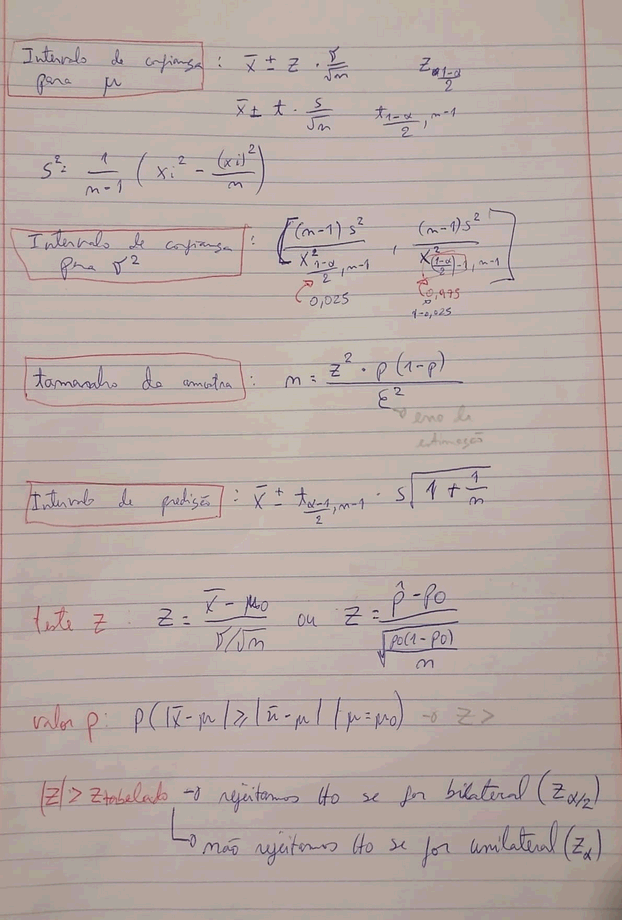 Intervalo de confiança : x̄ ± z · σ/√n    z_(1-α)/2
para μ
x̄ ± t · s/√n    t_(1-α)/2, n-1
S² = 1/(n-1) (xi² - (xi)²/n)
Intervalo de confiança : [(n-1)s² / X²_(1-α)/2, n-1 , (n-1)s² / X²_((1-α)/2)-1, n-1]
para σ²
0,025    0,975
1-0,025
tamanho da amostra : n = z² · p(1-p) / ε²
→ erro de
estimação
Intervalo de predição : x̄ ± t_(α-1)/2, n-1 · s√(1 + 1/n)
teste z    Z = (x̄ - μ0) / (σ/√n)  ou  Z = (p̂ - p0) / √(p0(1-p0)/n)
valor p: P(|x̄-μ| ⩾ |x̄-μ| | μ=μ0) → Z >
|Z| > z tabelado → rejeitamos H0 se for bilateral (Zα/2)
↳ não rejeitamos H0 se for unilateral (Zα)